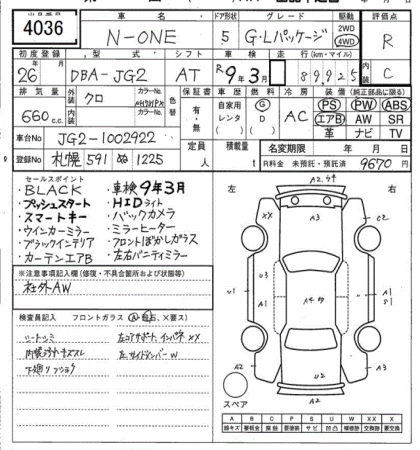 4036
車名 ドア形状 グレード 駆動 評価点
N-ONE 5 G・Lパッケージ 2WD 4WD R
初度登録 型式 シフト 車検 走行(km・マイル)
26 DBA-JG2 AT R9年3月 89925 C
排気量 外装 クロ カラーNo. 色替 保証書 車歴 燃料 冷房 装備(純正部品に限る)
660c.c. 内装 カラーNo. 有・無 自家用 レンタ G D AC PS PW ABS
エアB AW SR
革 ナビ TV
車台No JG2-1002922
登録No 札幌 591 ぬ 1225
定員 人 積載量 t 名変期限 年 月 日
R料金 未預託・預託済 9670 円
セールスポイント
・BLACK ・車検9年3月
・プッシュスタート ・HIDライト
・スマートキー ・バックカメラ
・ウインカーミラー ・ミラーヒーター
・ブラックインテリア ・フロントぼかしガラス
・カーテンエアB ・左右バニティミラー
※注意事項記入欄(修復・不具合箇所および状態等)
社外AW
検査員記入 フロントガラス (A・飛石、X要ス)
シートシミ 左コアサポート、インパネXX
内装コゲキズスレ 左、サイドメンバーW
下廻りフショク
左 右
A2
XX A3 C2
U3 A1
U1 A1
A2 A3
U2
A2
スペア
A B C P S U W XX X
線キズ 要鈑金 腐蝕 要塗装 サビ 凹凸 補修跡 交換跡 要交換